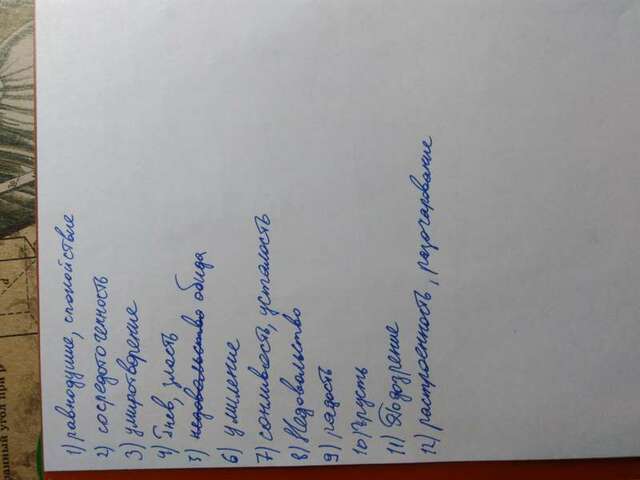 1) равнодушие, спокойствие
2) сосредоточенность
3) умиротворение
4) Гнев, злость
5) недовольство обида
6) умиление
7) сонливость, усталость
8) Недовольство
9) радость
10) грусть
11) Подозрение
12) растроенность, разочарование